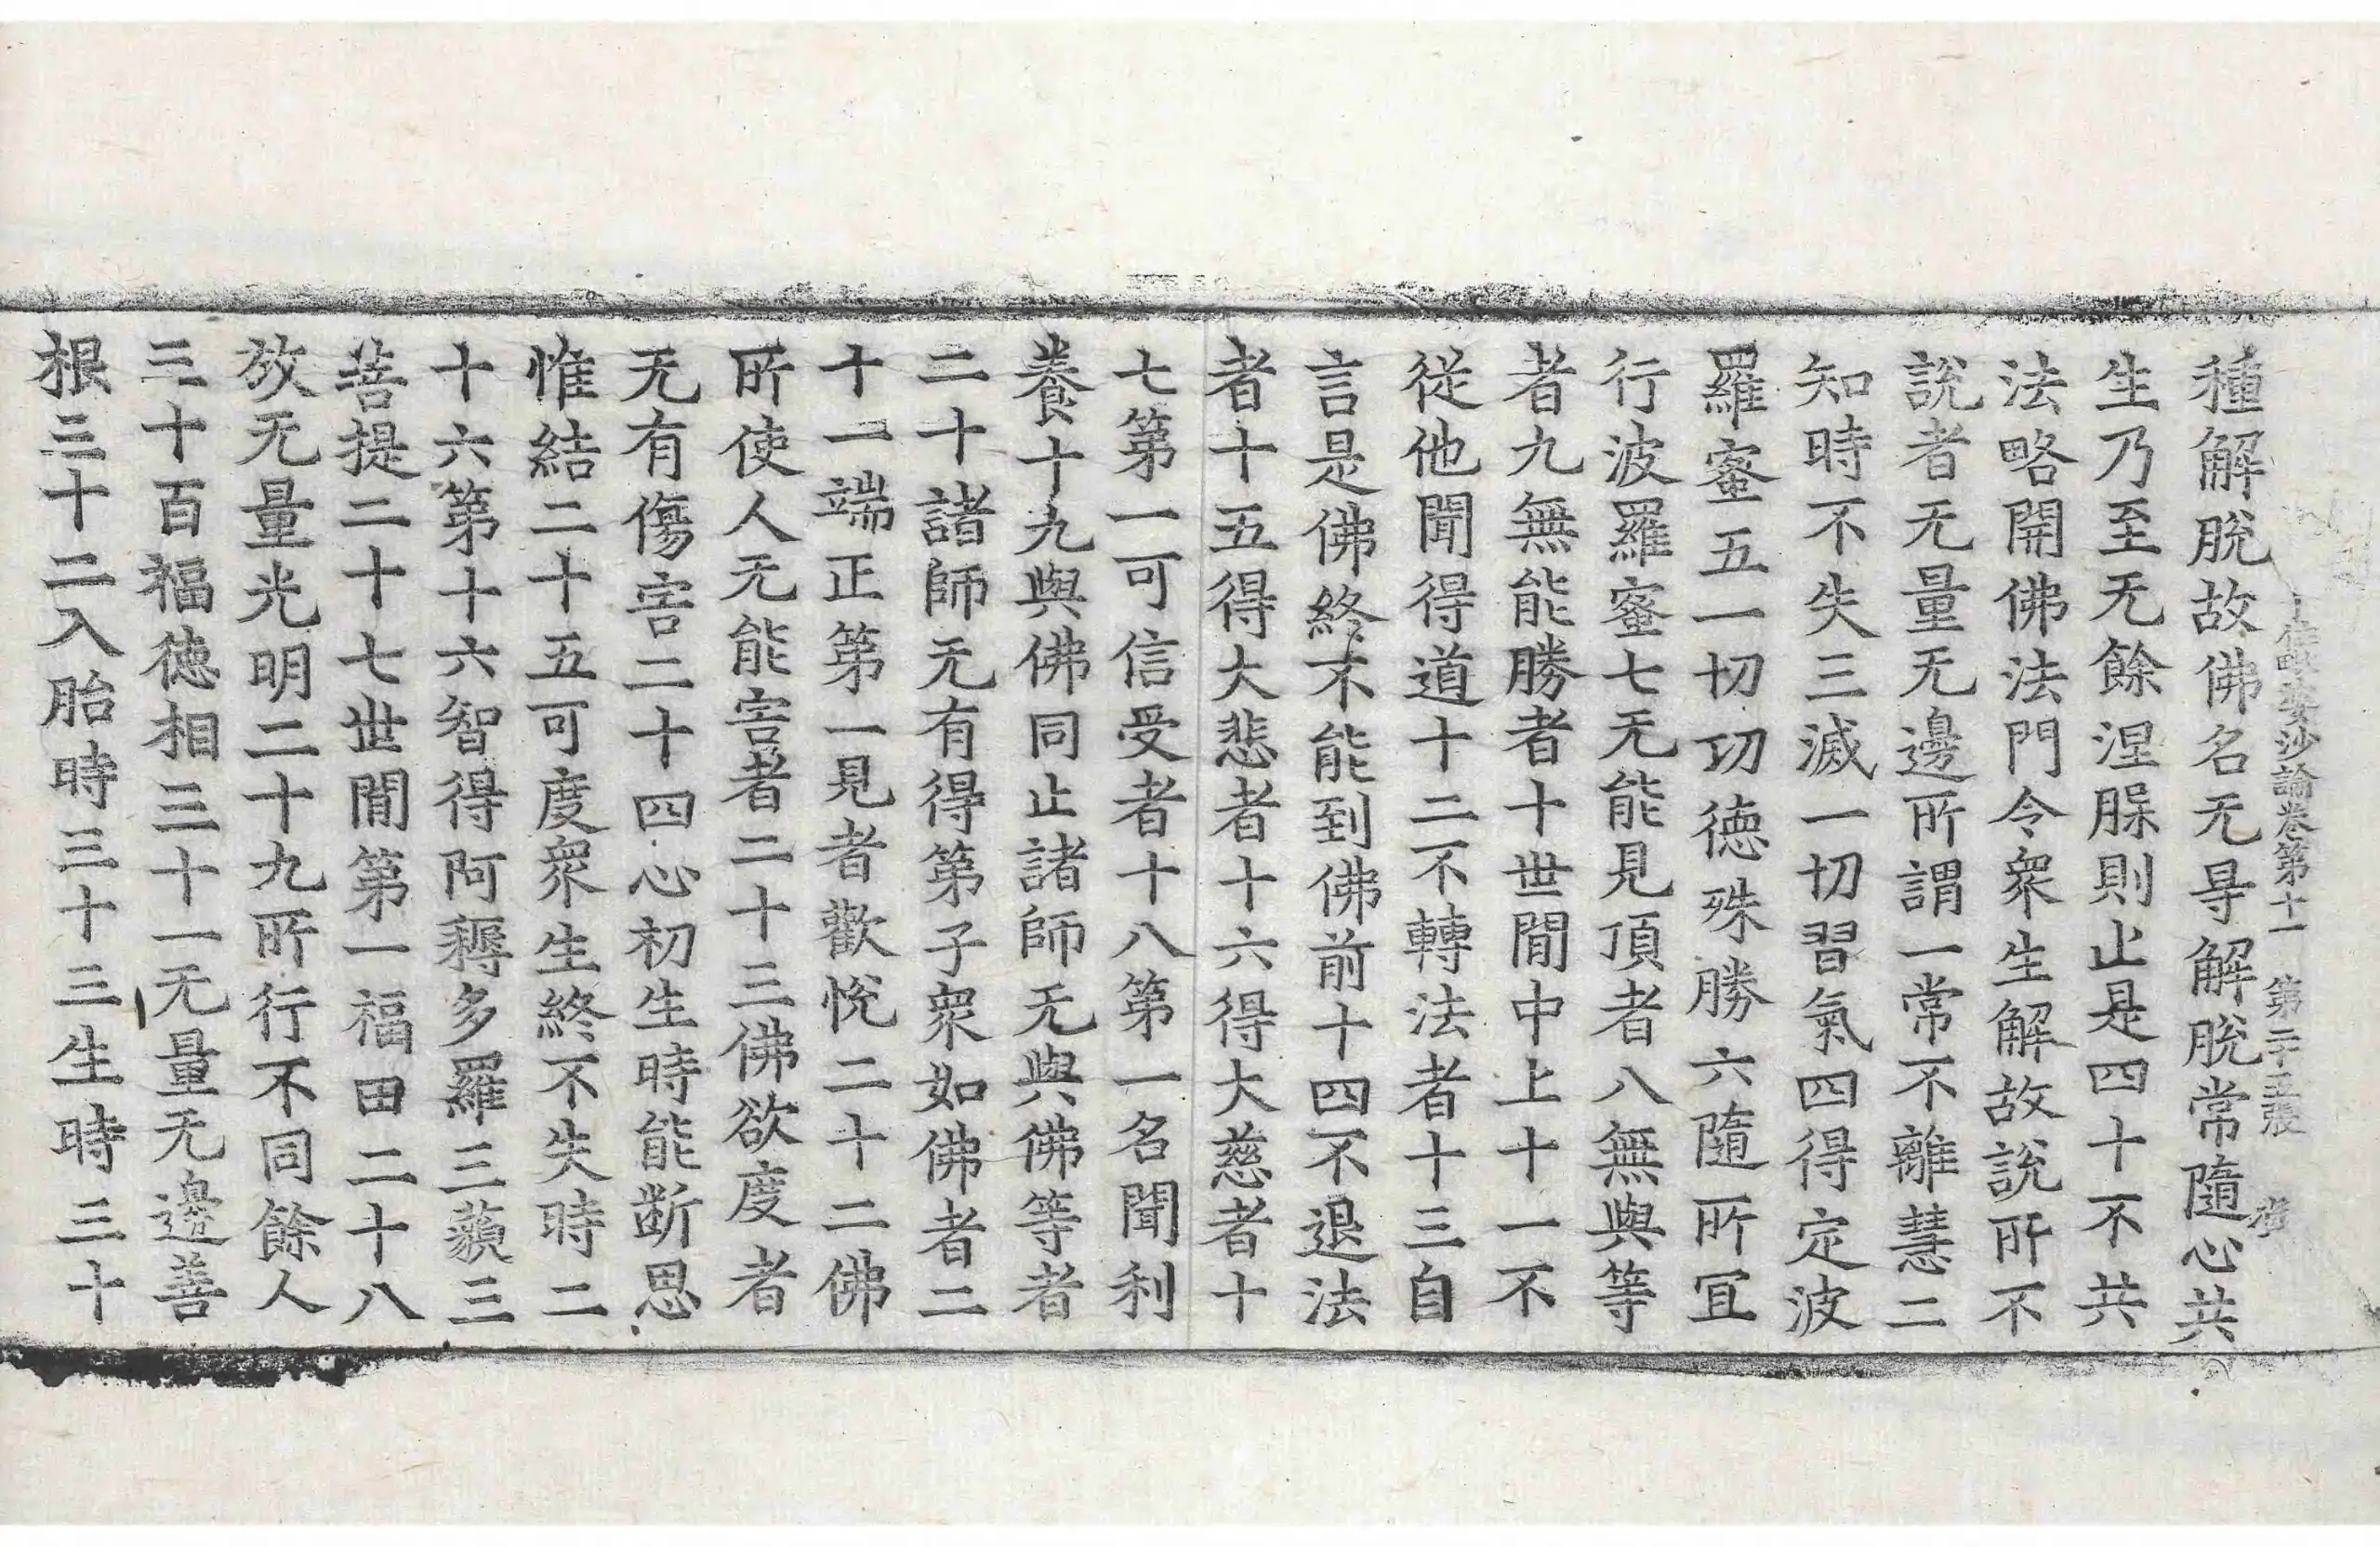 十住毗婆沙論卷第十一 第二十五張
種解脫故佛名无㝵解脫常隨心共
生乃至无餘涅槃則止是四十不共
法略開佛法門令衆生解故說所不
說者无量无邊所謂一常不離慧二
知時不失三滅一切習氣四得定波
羅蜜五一切功德殊勝六隨所宜
行波羅蜜七无能見頂者八無與等
者九無能勝者十世閒中上十一不
從他聞得道十二不轉法者十三自
言是佛終不能到佛前十四不退法
者十五得大悲者十六得大慈者十
七第一可信受者十八第一名聞利
養十九與佛同止諸師无與佛等者
二十諸師无有得第子衆如佛者二
十一端正第一見者歡悅二十二佛
所使人无能害者二十三佛欲度者
无有傷害二十四心初生時能斷思
惟結二十五可度衆生終不失時二
十六第十六智得阿耨多羅三藐三
菩提二十七世閒第一福田二十八
放无量光明二十九所行不同餘人
三十百福德相三十一无量无邊善
根三十二入胎時三十三生時三十